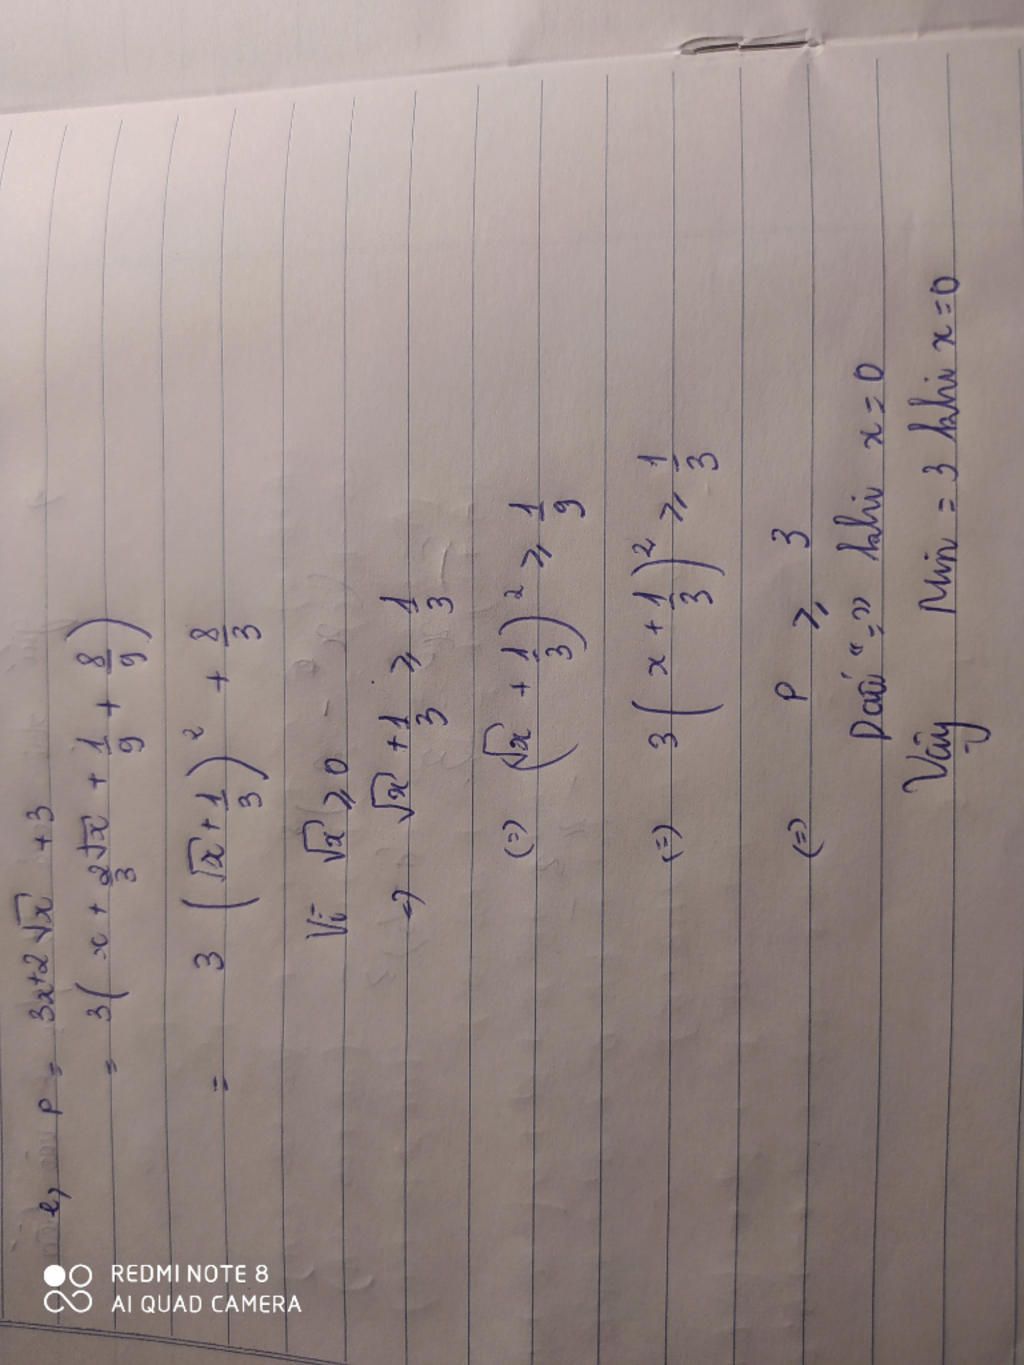 e, P = 3x+2√x +3
= 3( x + 2√x/3 + 1/9 + 8/9 )
= 3 ( √x + 1/3 )² + 8/3
Vì √x ⩾ 0
=> √x + 1/3 ⩾ 1/3
(=) ( √x + 1/3 )² ⩾ 1/9
(=) 3 ( x + 1/3 )² ⩾ 1/3
(=) P ⩾ 3
Dấu "=" khi x = 0
Vậy Min = 3 khi x = 0
REDMI NOTE 8
AI QUAD CAMERA